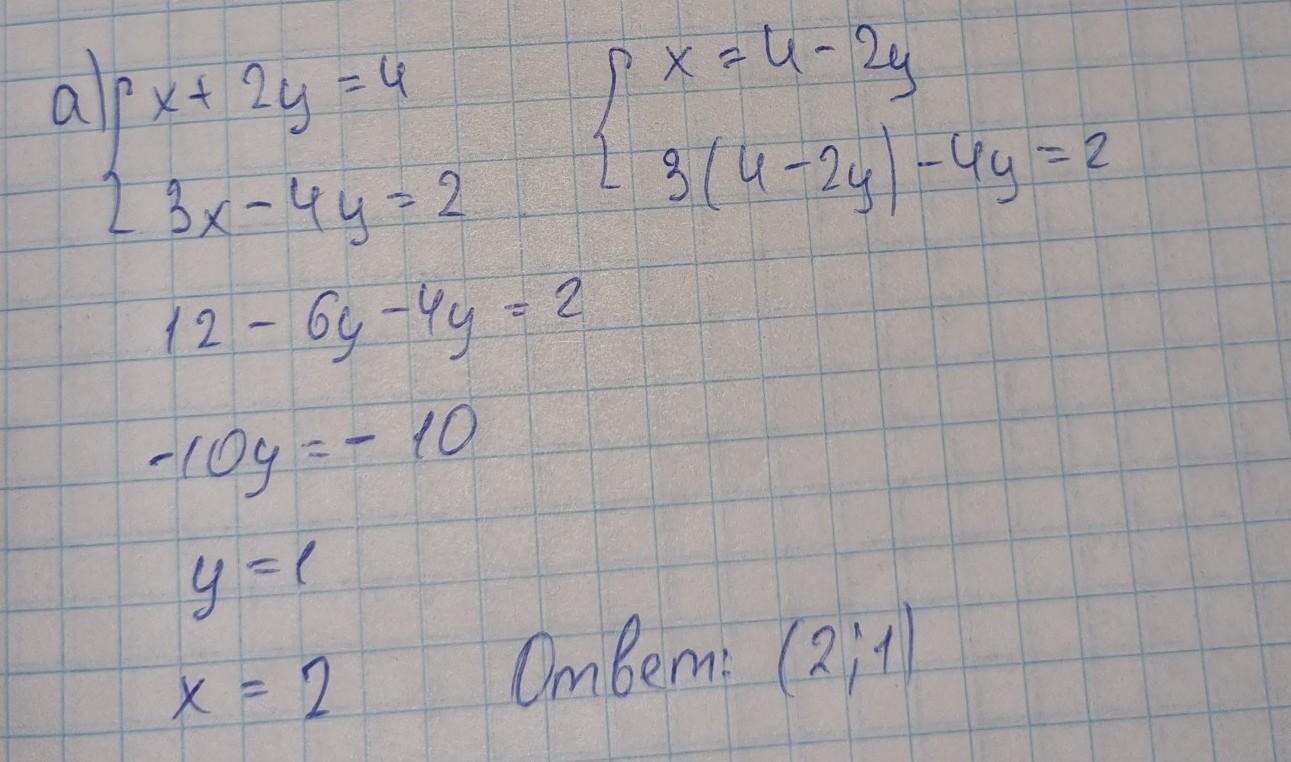 а) { x + 2y = 4
3x - 4y = 2
{ x = 4 - 2y
3(4 - 2y) - 4y = 2
12 - 6y - 4y = 2
-10y = - 10
y = 1
x = 2
Ответ: (2; 1)